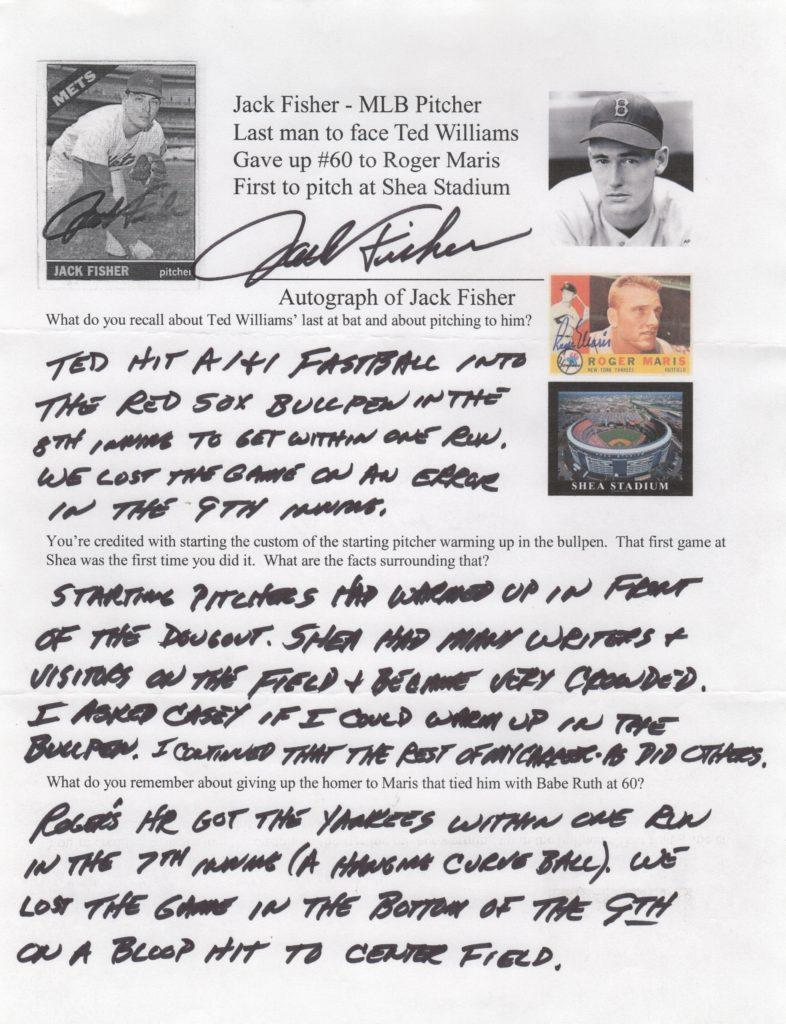 METS
JACK FISHER pitcher
Jack Fisher - MLB Pitcher
Last man to face Ted Williams
Gave up #60 to Roger Maris
First to pitch at Shea Stadium
B
Jack Fisher
Jack Fisher
Autograph of Jack Fisher
Roger Maris
ROGER MARIS
NEW YORK YANKEES OUTFIELD
SHEA STADIUM
What do you recall about Ted Williams' last at bat and about pitching to him?
TED HIT A 1+1 FASTBALL INTO
THE RED SOX BULLPEN IN THE
8TH INNING TO GET WITHIN ONE RUN.
WE LOST THE GAME ON AN ERROR
IN THE 9TH INNING.
You're credited with starting the custom of the starting pitcher warming up in the bullpen. That first game at
Shea was the first time you did it. What are the facts surrounding that?
STARTING PITCHERS HAD WARMED UP IN FRONT
OF THE DOUGOUT. SHEA HAD MANY WRITERS +
VISITORS ON THE FIELD + BECAME VERY CROWDED.
I ASKED CASEY IF I COULD WARM UP IN THE
BULLPEN. I CONTINUED THAT THE REST OF MY CAREER - AS DID OTHERS.
What do you remember about giving up the homer to Maris that tied him with Babe Ruth at 60?
ROGER'S HR GOT THE YANKEES WITHIN ONE RUN
IN THE 7TH INNING (A HANGING CURVE BALL). WE
LOST THE GAME IN THE BOTTOM OF THE 9TH
ON A BLOOP HIT TO CENTER FIELD.